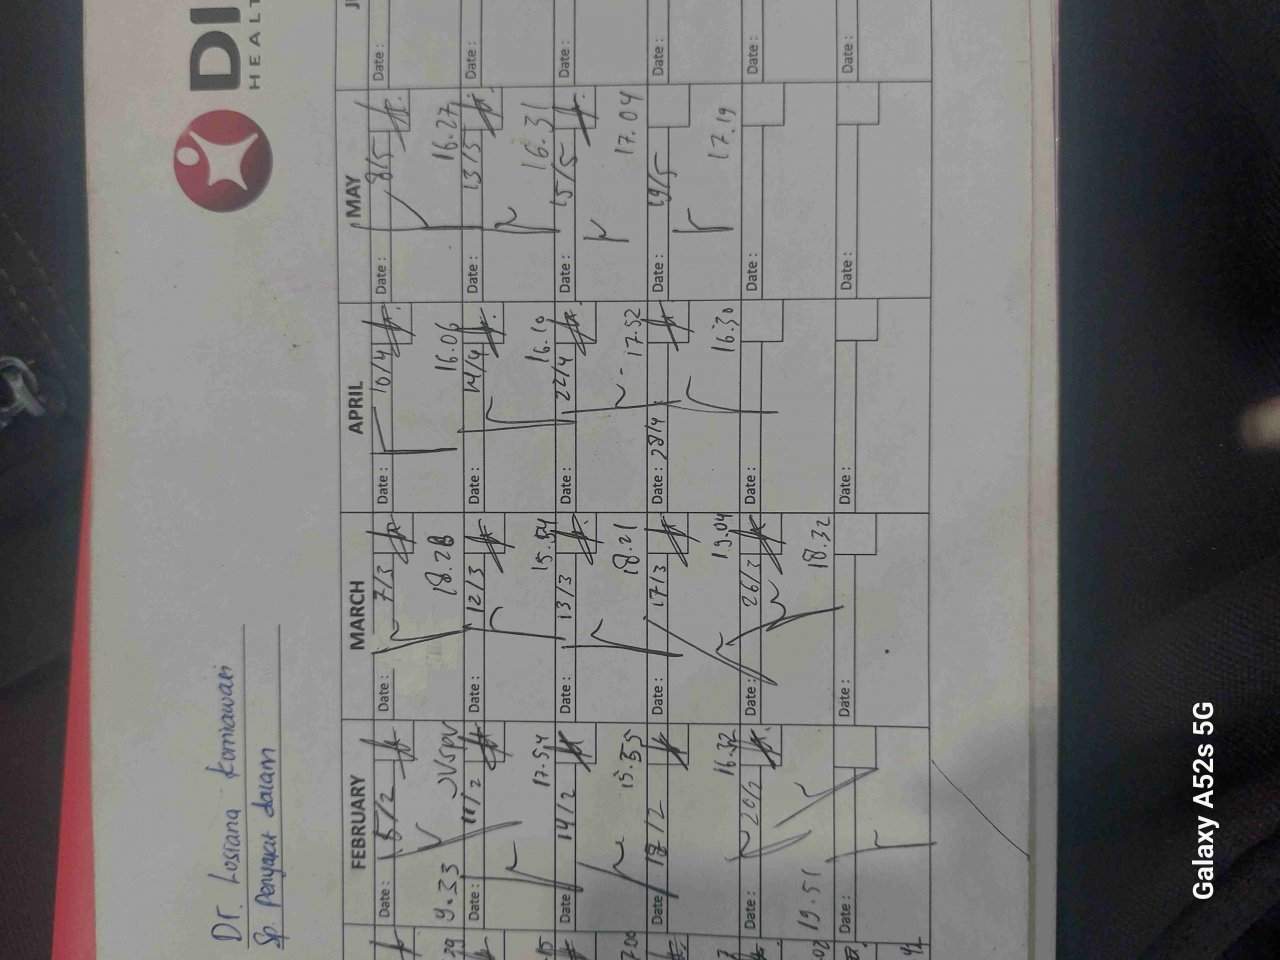 DI
HEALT
Dr. Losiana Korniawati
Sp Penyakit dalam
FEBRUARY MARCH APRIL MAY
Date: 5/2 Date: 7/3 Date: 10/4 Date: 8/5 Date:
9.33 18.28 16.06 16.27
Date: 11/2 Date: 12/3 Date: 14/4 Date: 13/5 Date:
17.54 15.54 16.10 16.31
Date: 14/2 Date: 13/3 Date: 22/4 Date: 15/5 Date:
15.55 18.21 17.52 17.04
Date: 18/2 Date: 17/3 Date: 28/4 Date: 19/5 Date:
16.32 19.04 16.30 17.19
Date: 20/2 Date: 26/3 Date: Date: Date:
19.51 18.32
Date: Date: Date: Date: Date:
Galaxy A52s 5G